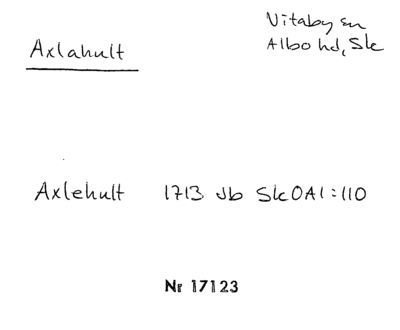 Axlahult
Vitaby sn
Albo hd, Sk
Axlehult 1713 Jb SkOA1:110
Nr 17123